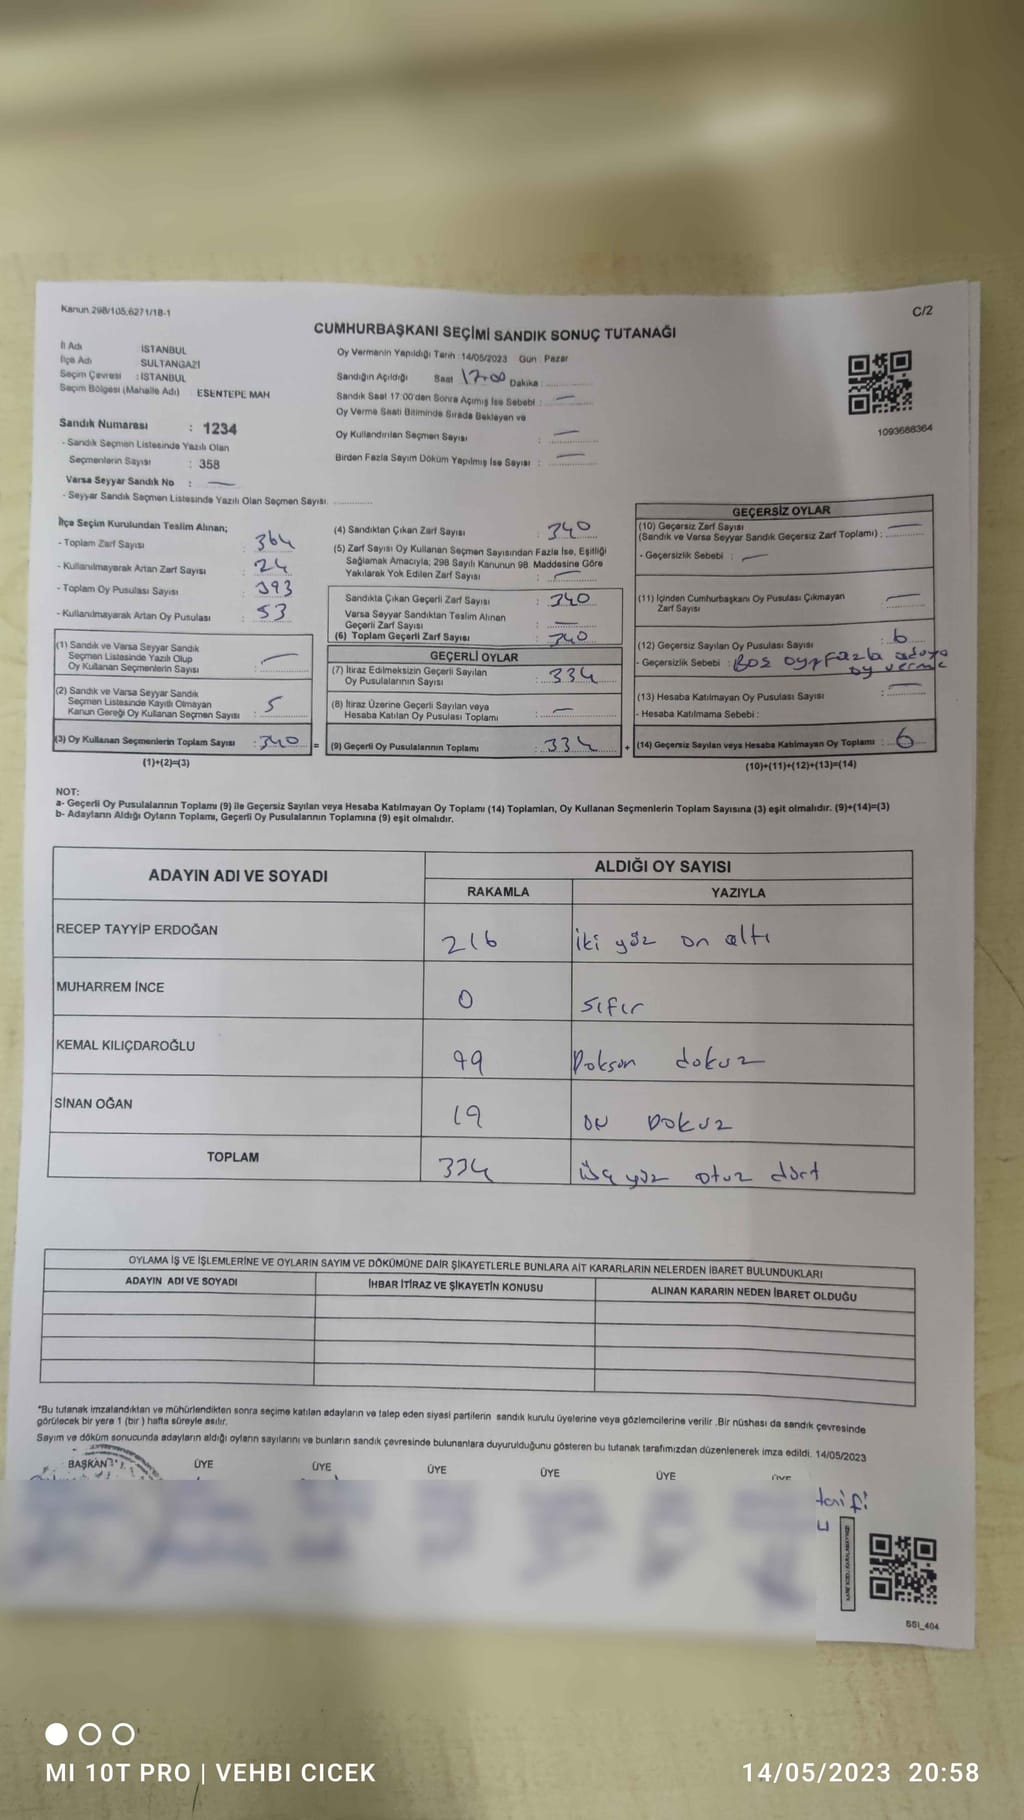 Kanun.298/105,6271/18-1
C/2
CUMHURBAŞKANI SEÇİMİ SANDIK SONUÇ TUTANAĞI
İl Adı İSTANBUL
İlçe Adı SULTANGAZİ
Seçim Çevresi : İSTANBUL
Seçim Bölgesi (Mahalle Adı) ESENTEPE MAH
Sandık Numarası : 1234
- Sandık Seçmen Listesinde Yazılı Olan
Seçmenlerin Sayısı : 358
Varsa Seyyar Sandık No : —
- Seyyar Sandık Seçmen Listesinde Yazılı Olan Seçmen Sayısı
Oy Vermenin Yapıldığı Tarih : 14/05/2023 Gün : Pazar
Sandığın Açıldığı Saat 17:00 Dakika :
Sandık Saat 17:00'den Sonra Açımış İse Sebebi : —
Oy Verme Saati Bitiminde Sırada Bekleyen ve
Oy Kullandırılan Seçmen Sayısı : —
Birden Fazla Sayım Döküm Yapılmış İse Sayısı : —
1093688364
İlçe Seçim Kurulundan Teslim Alınan;
- Toplam Zarf Sayısı : 364
- Kullanılmayarak Artan Zarf Sayısı : 24
- Toplam Oy Pusulası Sayısı : 393
- Kullanılmayarak Artan Oy Pusulası : 53
(1) Sandık ve Varsa Seyyar Sandık
Seçmen Listesinde Yazılı Olup
Oy Kullanan Seçmenlerin Sayısı : —
(2) Sandık ve Varsa Seyyar Sandık
Seçmen Listesinde Kayıtlı Olmayan
Kanun Gereği Oy Kullanan Seçmen Sayısı : 5
(3) Oy Kullanan Seçmenlerin Toplam Sayısı : 340 =
(1)+(2)=(3)
(4) Sandıktan Çıkan Zarf Sayısı : 340
(5) Zarf Sayısı Oy Kullanan Seçmen Sayısından Fazla İse, Eşitliği
Sağlamak Amacıyla; 298 Sayılı Kanunun 98. Maddesine Göre
Yakılarak Yok Edilen Zarf Sayısı : —
Sandıkta Çıkan Geçerli Zarf Sayısı : 340
Varsa Seyyar Sandıktan Teslim Alınan
Geçerli Zarf Sayısı : —
(6) Toplam Geçerli Zarf Sayısı : 340
GEÇERLİ OYLAR
(7) İtiraz Edilmeksizin Geçerli Sayılan
Oy Pusulalarının Sayısı : 334
(8) İtiraz Üzerine Geçerli Sayılan veya
Hesaba Katılan Oy Pusulası Toplamı : —
(9) Geçerli Oy Pusulalarının Toplamı : 334 +
GEÇERSİZ OYLAR
(10) Geçersiz Zarf Sayısı
(Sandık ve Varsa Seyyar Sandık Geçersiz Zarf Toplamı) : —
- Geçersizlik Sebebi : —
(11) İçinden Cumhurbaşkanı Oy Pusulası Çıkmayan
Zarf Sayısı : —
(12) Geçersiz Sayılan Oy Pusulası Sayısı : 6
- Geçersizlik Sebebi : Boş oy, fazla adaya
oy verme
(13) Hesaba Katılmayan Oy Pusulası Sayısı : —
- Hesaba Katılmama Sebebi :
(14) Geçersiz Sayılan veya Hesaba Katılmayan Oy Toplamı : 6
(10)+(11)+(12)+(13)=(14)
NOT:
a- Geçerli Oy Pusulalarının Toplamı (9) ile Geçersiz Sayılan veya Hesaba Katılmayan Oy Toplamı (14) Toplamları, Oy Kullanan Seçmenlerin Toplam Sayısına (3) eşit olmalıdır. (9)+(14)=(3)
b- Adayların Aldığı Oyların Toplamı, Geçerli Oy Pusulalarının Toplamına (9) eşit olmalıdır.
ADAYIN ADI VE SOYADI ALDIĞI OY SAYISI
RAKAMLA YAZIYLA
RECEP TAYYİP ERDOĞAN 216 İki yüz on altı
MUHARREM İNCE 0 sıfır
KEMAL KILIÇDAROĞLU 99 Doksan dokuz
SİNAN OĞAN 19 on Dokuz
TOPLAM 334 üç yüz otuz dört
OYLAMA İŞ VE İŞLEMLERİNE VE OYLARIN SAYIM VE DÖKÜMÜNE DAİR ŞİKAYETLERLE BUNLARA AİT KARARLARIN NELERDEN İBARET BULUNDUKLARI
ADAYIN ADI VE SOYADI İHBAR İTİRAZ VE ŞİKAYETİN KONUSU ALINAN KARARIN NEDEN İBARET OLDUĞU
*Bu tutanak imzalandıktan ve mühürlendikten sonra seçime katılan adayların ve talep eden siyasi partilerin sandık kurulu üyelerine veya gözlemcilerine verilir .Bir nüshası da sandık çevresinde
görülecek bir yere 1 (bir ) hafta süreyle asılır.
Sayım ve döküm sonucunda adayların aldığı oyların sayılarını ve bunların sandık çevresinde bulunanlara duyurulduğunu gösteren bu tutanak tarafımızdan düzenlenerek imza edildi. 14/05/2023
BAŞKAN ÜYE ÜYE ÜYE ÜYE ÜYE ÜYE
SSI_404
MI 10T PRO | VEHBI CICEK
14/05/2023 20:58